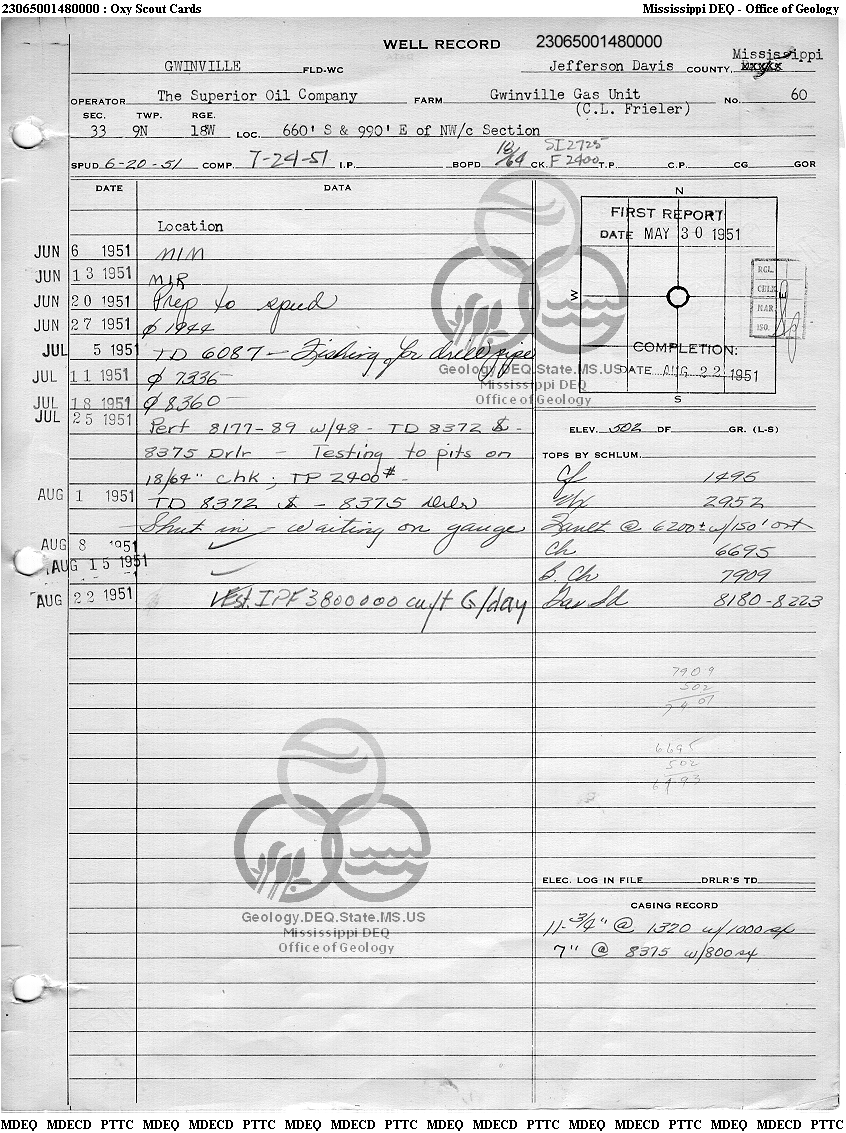 23065001480000 : Oxy Scout Cards Mississippi DEQ - Office of Geology
WELL RECORD 23065001480000
Mississippi
GWINVILLE FLD-WC Jefferson Davis COUNTY,
OPERATOR The Superior Oil Company FARM Gwinville Gas Unit No. 60
(C.L. Frieler)
SEC. TWP. RGE.
33 9N 18W LOC. 660' S & 990' E of NW/c Section
SI 2725
SPUD 6-20-51 COMP. 7-24-51 I.P. BOPD 18/64 CK. F 2400 T.P. C.P. CG GOR
DATE DATA
N
FIRST REPORT
DATE MAY 30 1951
W
COMPLETION:
DATE AUG 22 1951
S
Location
JUN 6 1951 MIM
JUN 13 1951 MIR
JUN 20 1951 Prep to spud
JUN 27 1951 ∅ 1944
JUL 5 1951 TD 6087 - Fishing for drill pipe
JUL 11 1951 ∅ 7336
JUL 18 1951 ∅ 8360
JUL 25 1951 Perf 8177-89 w/48 - TD 8372 $ -
8375 Drlr - Testing to pits on
18/64" Chk; TP 2400#
AUG 1 1951 TD 8372 $ - 8375 Drlr
Shut in - waiting on gauge
AUG 8 1951 ✓
AUG 15 1951 ✓
AUG 22 1951 Est. IPF 3800000 cu/ft G/day
ELEV. 502 DF GR. (L-S)
TOPS BY SCHLUM.
1495
2952
@ 6200± w/150' ort
Ch 6695
B. Ch 7909
8180-8223
7909
502
7407
6695
502
6193
ELEC. LOG IN FILE DRLR'S TD
CASING RECORD
11-3/4" @ 1320 w/1000 sx
7" @ 8375 w/800 sx
Geology.DEQ.State.MS.US
Mississippi DEQ
Office of Geology
Geology.DEQ.State.MS.US
Mississippi DEQ
Office of Geology
MDEQ MDECD PTTC MDEQ MDECD PTTC MDEQ MDECD PTTC MDEQ MDECD PTTC MDEQ MDECD PTTC MDEQ MDECD PTTC